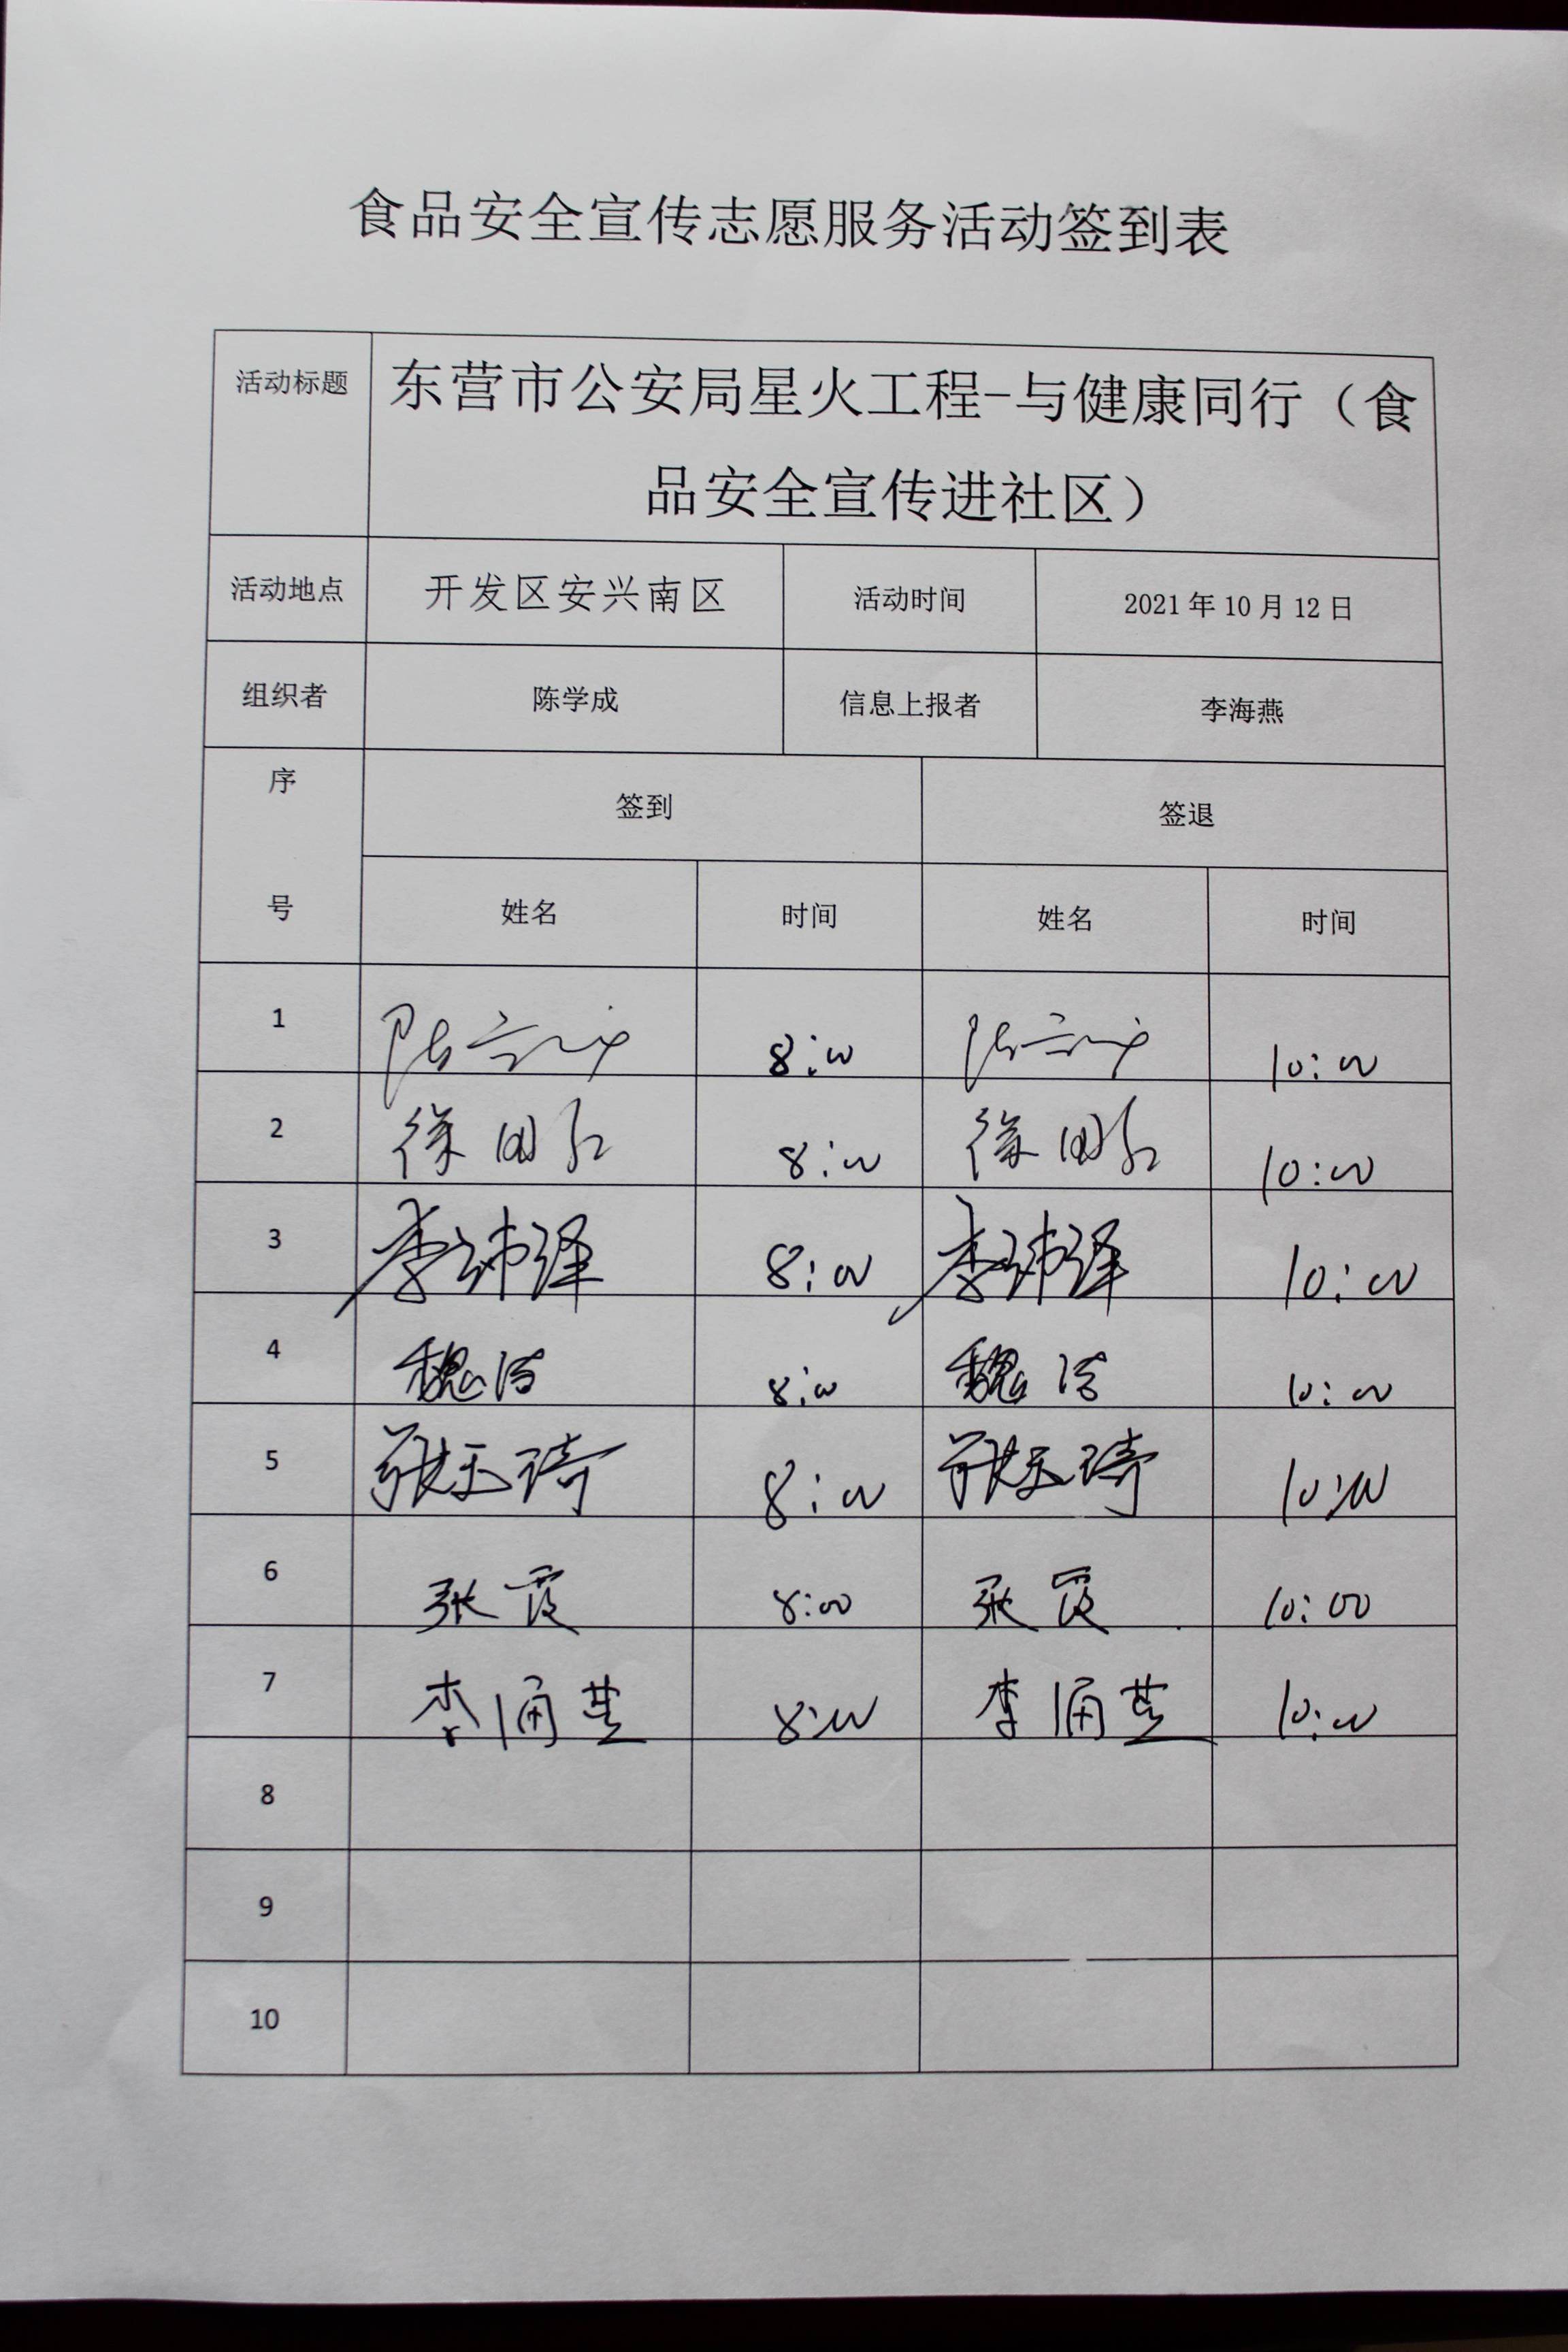 食品安全宣传志愿服务活动签到表
活动标题 东营市公安局星火工程-与健康同行（食
品安全宣传进社区）
活动地点 开发区安兴南区 活动时间 2021年10月12日
组织者 陈学成 信息上报者 李海燕
序 签到 签退
号 姓名 时间 姓名 时间
1 8:00 10:00
2 徐 8:00 徐 10:00
3 李 8:00 李 10:00
4 魏洁 8:00 魏洁 10:00
5 张玉琦 8:00 张玉琦 10:00
6 张霞 8:00 张霞 10:00
7 李 8:00 李 10:00
8
9
10